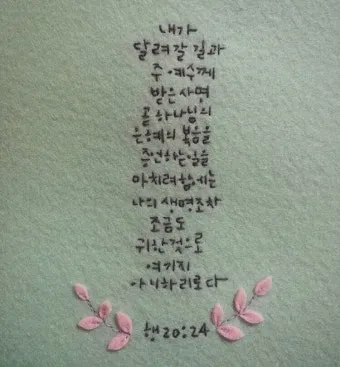 내가
달려갈 길과
주 예수께
받은 사명
곧 하나님의
은혜의 복음을
증언하는 일을
마치려 함에는
나의 생명조차
조금도
귀한 것으로
여기지
아니하리로다
행 20:24